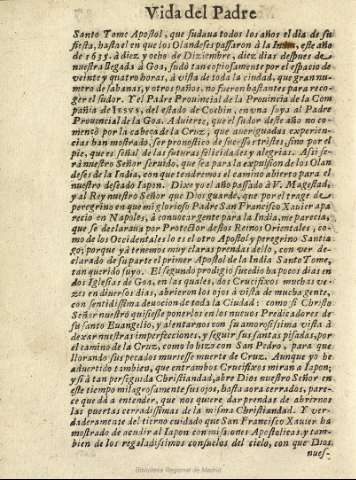 Vida del Padre
Santo Tome Apostol, que sudaua todos los años el dia de su
fiesta, hasta el en que los Olandeses passaron à la India, este año
de 1635. à diez y ocho de Diziembre, diez dias despues de
nuestra llegada à Goa, sudò tan copiosamente por el espacio de
veinte y quatro horas, à vista de toda la ciudad, que gran nume-
ro de sabanas, y otros paños, no fueron bastantes para reco-
ger el sudor. Y el Padre Prouincial de la Prouincia de la Com
pañia de IESVS, del estado de Cochin, en vna soya al Padre
Prouincial de la Goa. Aduierte, que el sudor deste año no co-
mentò por la cabeça de la Cruz, que aueriguadas experien-
cias han mostrado, ser pronostico de sucessos tristes, sino por el
pie, que es señal de las futuras felicidades y alegrias. Assi se-
rà nuestro Señor seruido, que sea para la expulsion de los Olan
deses de la India, con que tendremos el camino abierto para el
nuestro deseado Iapon. Dixe yo el año passado à V. Magestad,
y al Rey nuestro Señor que Dios guarde, que por el trage de
peregrino en que mi glorioso Padre San Francisco Xauier apa
recio en Napoles, à conuocar gente para la India, me parecia,
que se declaraua por Protector destos Reinos Orientales, co-
mo de los Occidentales lo es el otro Apostol y peregrino Santia
go; porque yà tenemos muy claras prendas dello, con ver de-
clarado de su parte el primer Apostol de la India Santo Tome,
tan querido suyo. El segundo prodigio sucedio ha pocos dias en
dos Iglesias de Goa, en las quales, dos Crucifixos muchas ve-
zes en diuersos dias, abrieron los ojos à vista de mucha gente,
con sentidissima deuocion de toda la Ciudad: como si Christo
Señor nuestro quisiesse ponerlos en los nueuos Predicadores de
su santo Euangelio, y alentarnos con su amorosissima vista à
dexar nuestras imperfecciones, y seguir sus santas pisadas, por
el camino de la Cruz, como lo hizo con San Pedro, para que
llorando sus pecados muriesse muerte de Cruz. Aunque yo he
aduertido tambien, que entrambos Crucifixos miran a Iapon;
y si à tan perseguida Christiandad, abre Dios nuestro Señor en
este tiempo milagrosamente sus ojos, hasta aora cerrados, pare-
ce que dà à entender, que nos quiere dar prendas de abrirnos
las puertas cerradissimas de la misma Christiandad. Y ver-
daderamente del tierno cuidado que San Francisco Xauier ha
mostrado de acudir al Iapon con missiones Apostolicas, y tam-
bien de los regaladissimos consuelos del cielo, con que Dios
nues-
Biblioteca Regional de Madrid